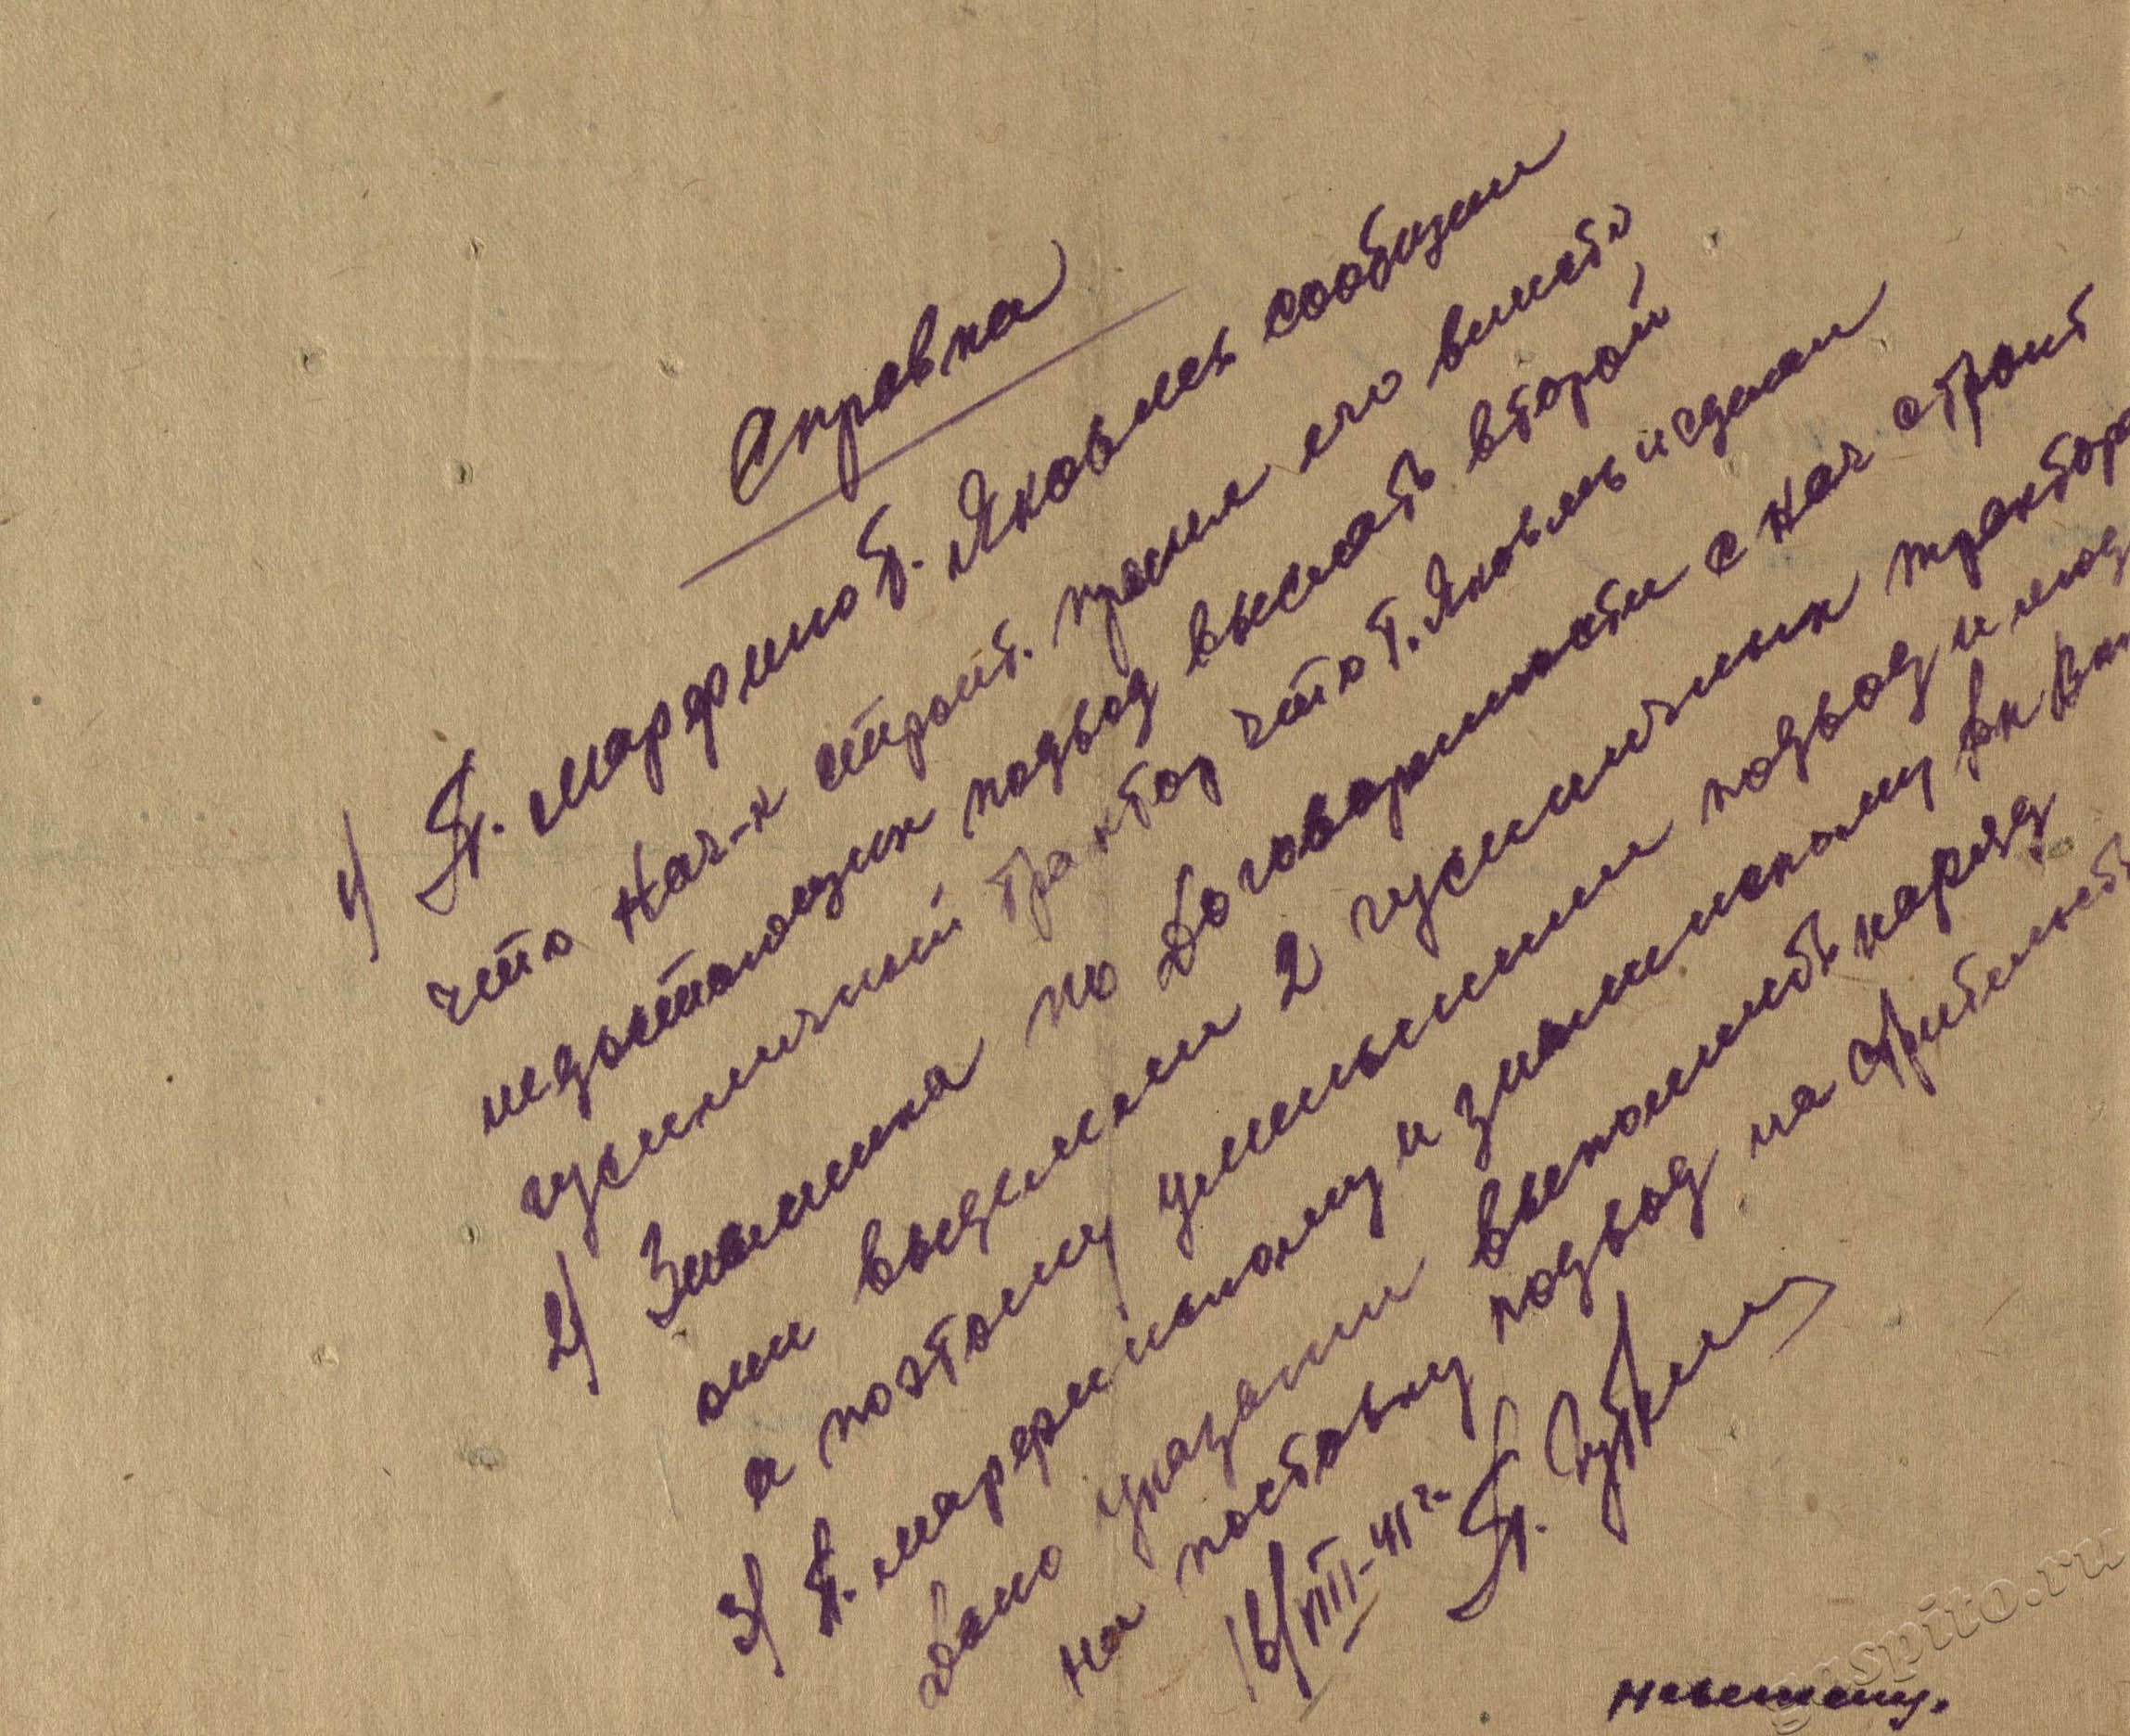 Справка
1) Т. Марфино т. Яковлев сообщил
что Нач-к строит. просил его вместо
недостающих подвод выслать второй
гусеничный трактор что т. Яковлев и сделал
2) Знаменка по договоренности с Нач строит
они выделили 2 гусеничных трактора
а поэтому уменьшили подвод и люд
3) Т. Марфинскому и Знаменскому Рк Вкп
дано указание выполнить наряд
на поставку подвод на строительств
16/VIII-41 г. Т.
gaspito.ru